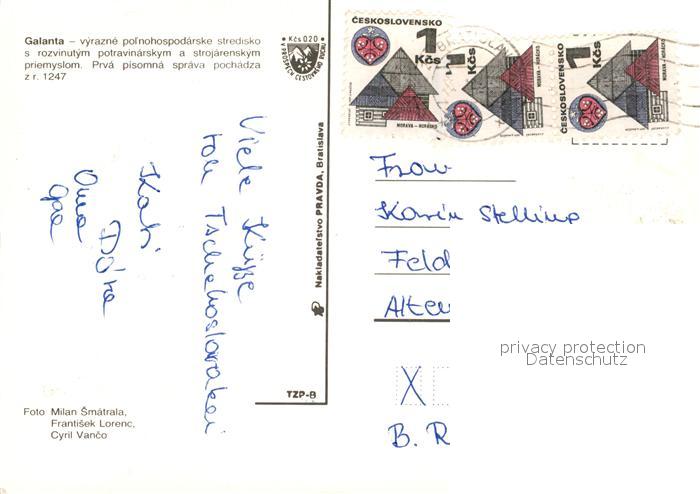 Galanta – výrazné poľnohospodárske stredisko
s rozvinutým potravinárskym a strojárenským
priemyslom. Prvá písomná správa pochádza
z r. 1247
Kčs 0,20
ČESKOSLOVENSKO
1
Kčs
MORAVA - HORÁCKO
1
Kčs
MORAVA - HORÁCKO
ČESKOSLOVENSKO
1
Kčs
MORAVA - HORÁCKO
Viele Küsse
von Tschechoslowakei
Kati
Dóra
Oma
Opa
Nakladateľstvo PRAVDA, Bratislava
TZP-8
Frau
Karin Stelling
Feld
Alten
X
B. R
privacy protection
Datenschutz
Foto Milan Šmátrala,
František Lorenc,
Cyril Vančo